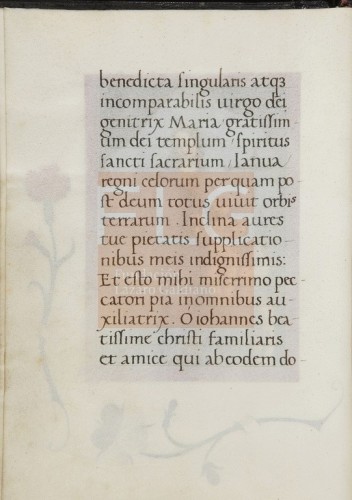 benedicta singularis atqꝫ
incomparabilis uirgo dei
genitrix Maria gratissim
um dei templum spiritus
sancti sacrarium Ianua
regni celorum perquam po
st deum totus uiuit orbis
terrarum. Inclina aures
tue pietatis supplicatio-
nibus meis indignissimis:
Et esto mihi miserrimo pec
catori pia in omnibus au-
xiliatrix. O iohannes bea
tissime christi familiaris
et amice qui ab eodem do-
FLG
Fundación
Lázaro Galdiano